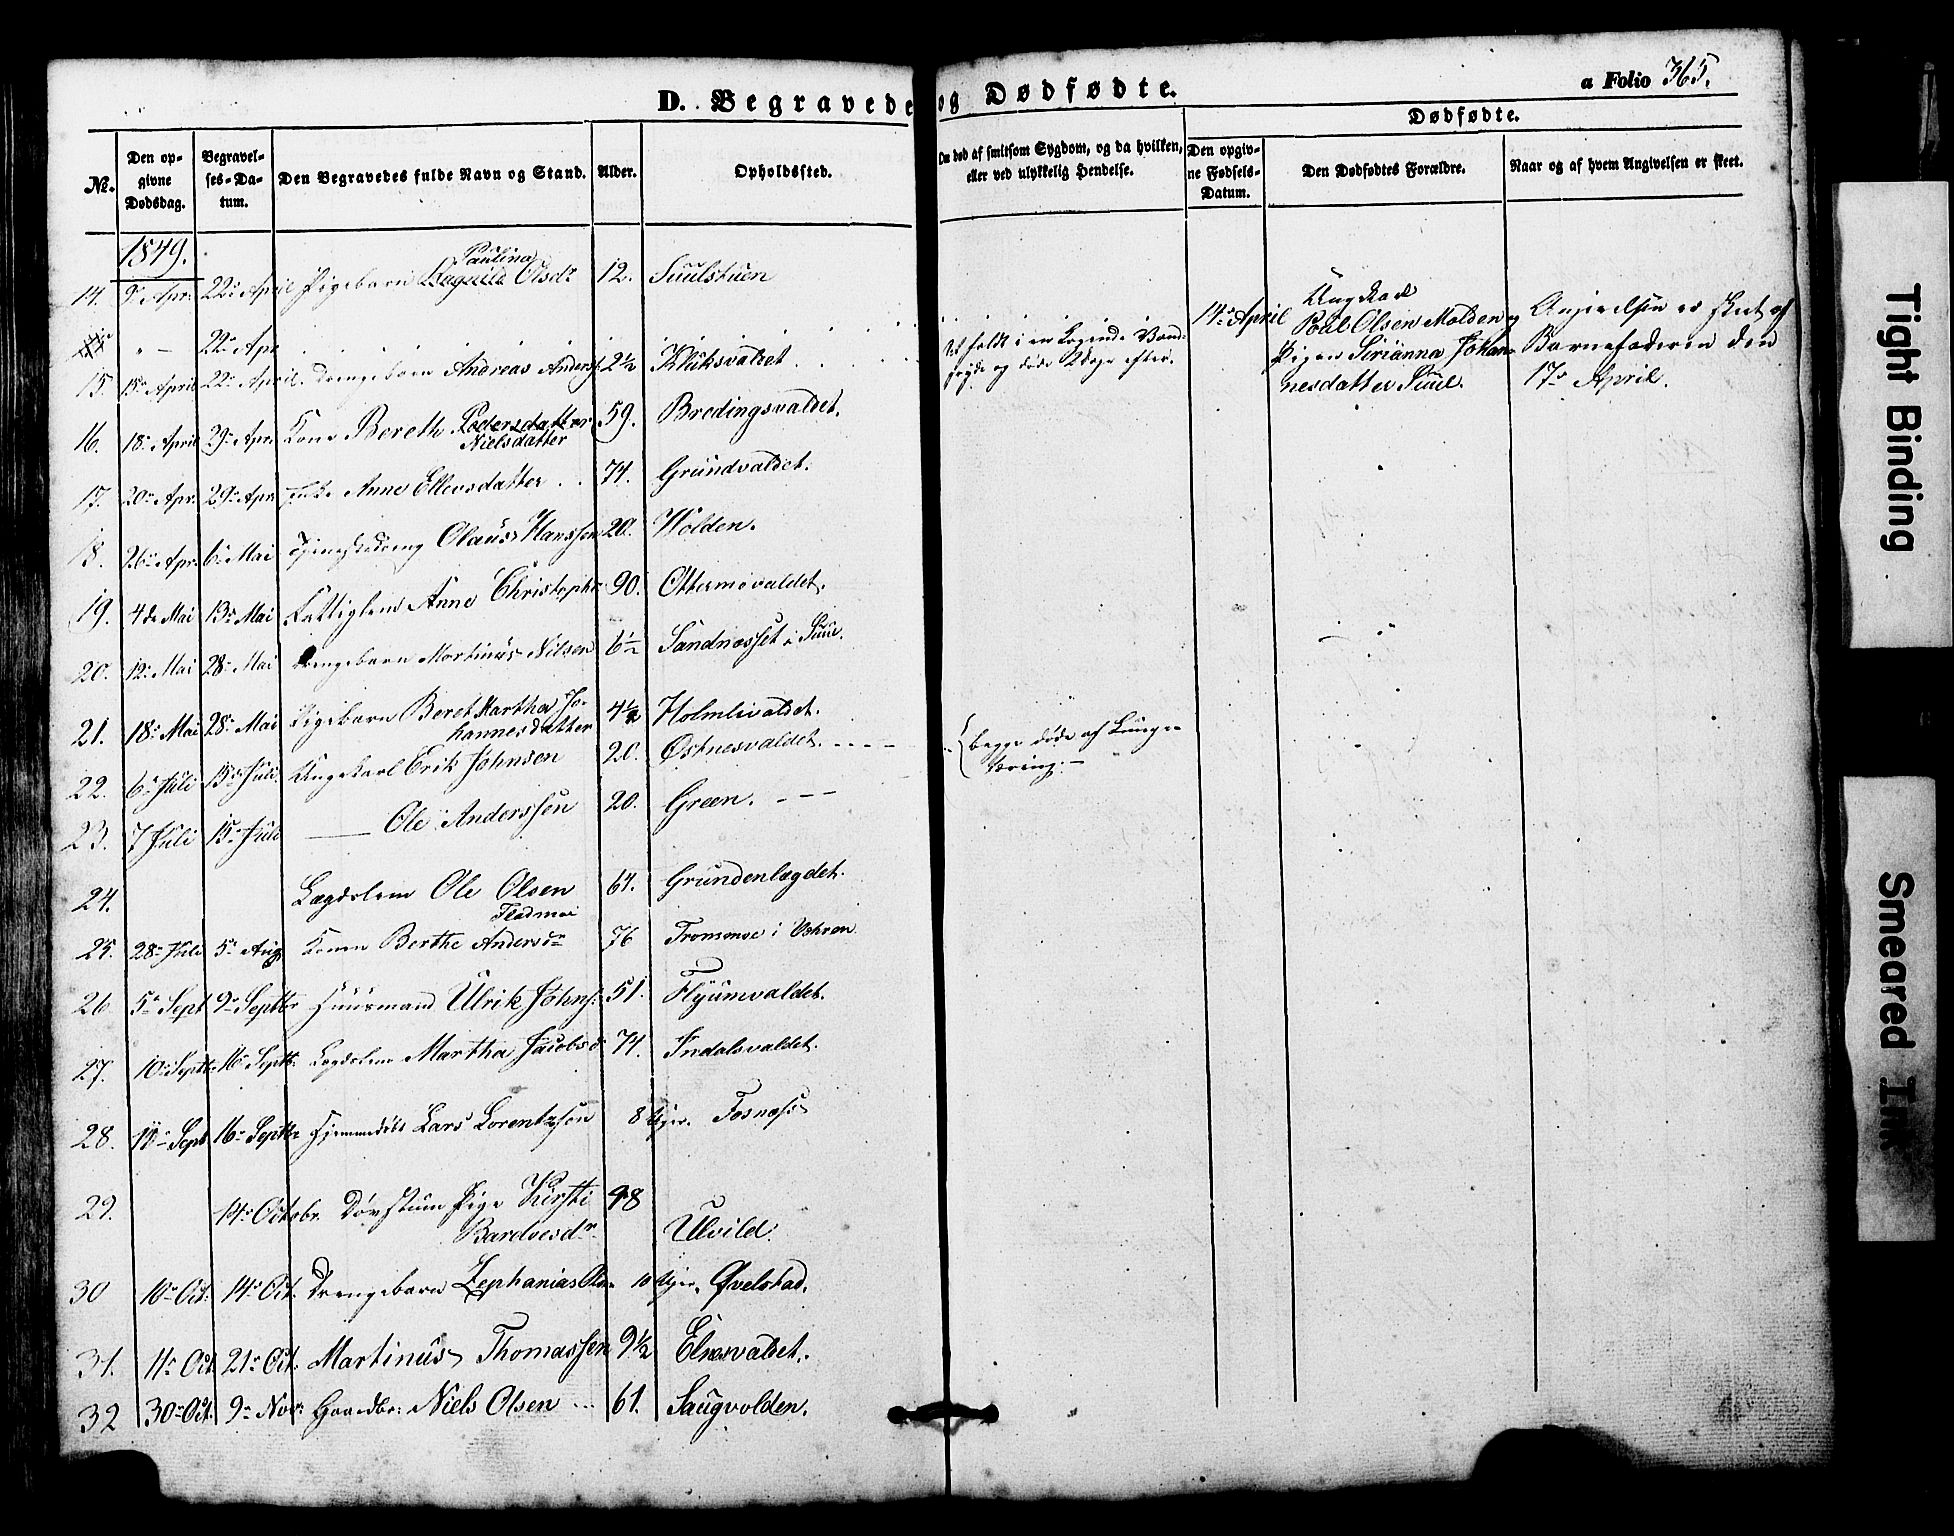 D. Begravede og Dødfødte.
a Folio 365.
No.
Den opgivne Dødsdag.
Begravelses-Datum.
Den Begravedes fulde Navn og Stand.
Alder.
Opholdssted.
Om død af smitsom Sygdom, og da hvilken, eller ved ulykkelig Hendelse.
Dødfødte.
Den opgivne Fødsels-Datum.
Den Dødfødtes Forældre.
Naar og af hvem Angivelsen er skeet.
1849.
Paulina
14. 9de Apr: 22de April Pigebarn Ragnild Olsdr 12. Suulstuen
" — 22de Apr
14de April
Ungkarl
Poul Olsen Molden og
Pigen Sirianna Johannesdatter Suul.
Angivelsen er skeet af
Barnefaderen den
17de April.
15. 15de April 22de April. Drengebarn Andreas Anders. 2½ Kluksvaldet.
faldt i en kogende Vand-
gryde og døde 2 Dage efter.
16. 18de April 29de Apr. Kone Bereth Pedersdatter 59. Bredingsvaldet.
Nielsdatter
17. 20de Apr. 29de Apr Enke Anne Ellevsdatter . . 74. Grundvaldet.
18. 26de Apr. 6te Mai Tjenestedreng Olaus Hanssen 20. Wolden.
19. 4de Mai 13de Mai Fattiglem Anne Christophr 90. Ottermovaldet.
20. 12te Mai 28de Mai Drengebarn Martinus Nilsen 6½ Sandnesset i Suul.
21. 18de Mai 28de Mai Pigebarn Beret Martha Jo-
hannesdatter 4½ Holmlivaldet.
22. 6te Juli 15de Juli. Ungekarl Erik Johnsen 20. Østnesvaldet.
23. 7 Juli 15de Juli —— Ole Anderssen 20. Green.
begge døde af Lunge-
24. Lægdslem Ole Olsen 64. Grundenlægdet.
Fladmoe
25. 28de Juli 5te Aug Konen Berthe Andersdr 76 Tromsnoe i
26 5te Sept 9de Septbr Huusmand Ulrik Johns. 51. Flyumvaldet.
27. 10de Septbr 16de Septbr. Lægdslem Martha Jacobsd 74. Indalsvaldet.
28. 10de Sept 16de Septbr Hjemmedøbt Lars Lorentzsen 8 Uger. Fosness
29. 14de Octobr. Døvstum Pige Kirsti 48
Bardoesdr. Ulvild.
30 10de Oct: 14de Oct. Drengebarn Zephanias 10 Uger. Qvelstad.
31. 11te Oct. 21de Oct. Martinus Thomassen 9½ Elnesvaldet.
32 30de Oct. 9de Nov: Gaardbr: Niels Olsen ... 61. Saugvolden.
Tight Binding
Smeared Ink